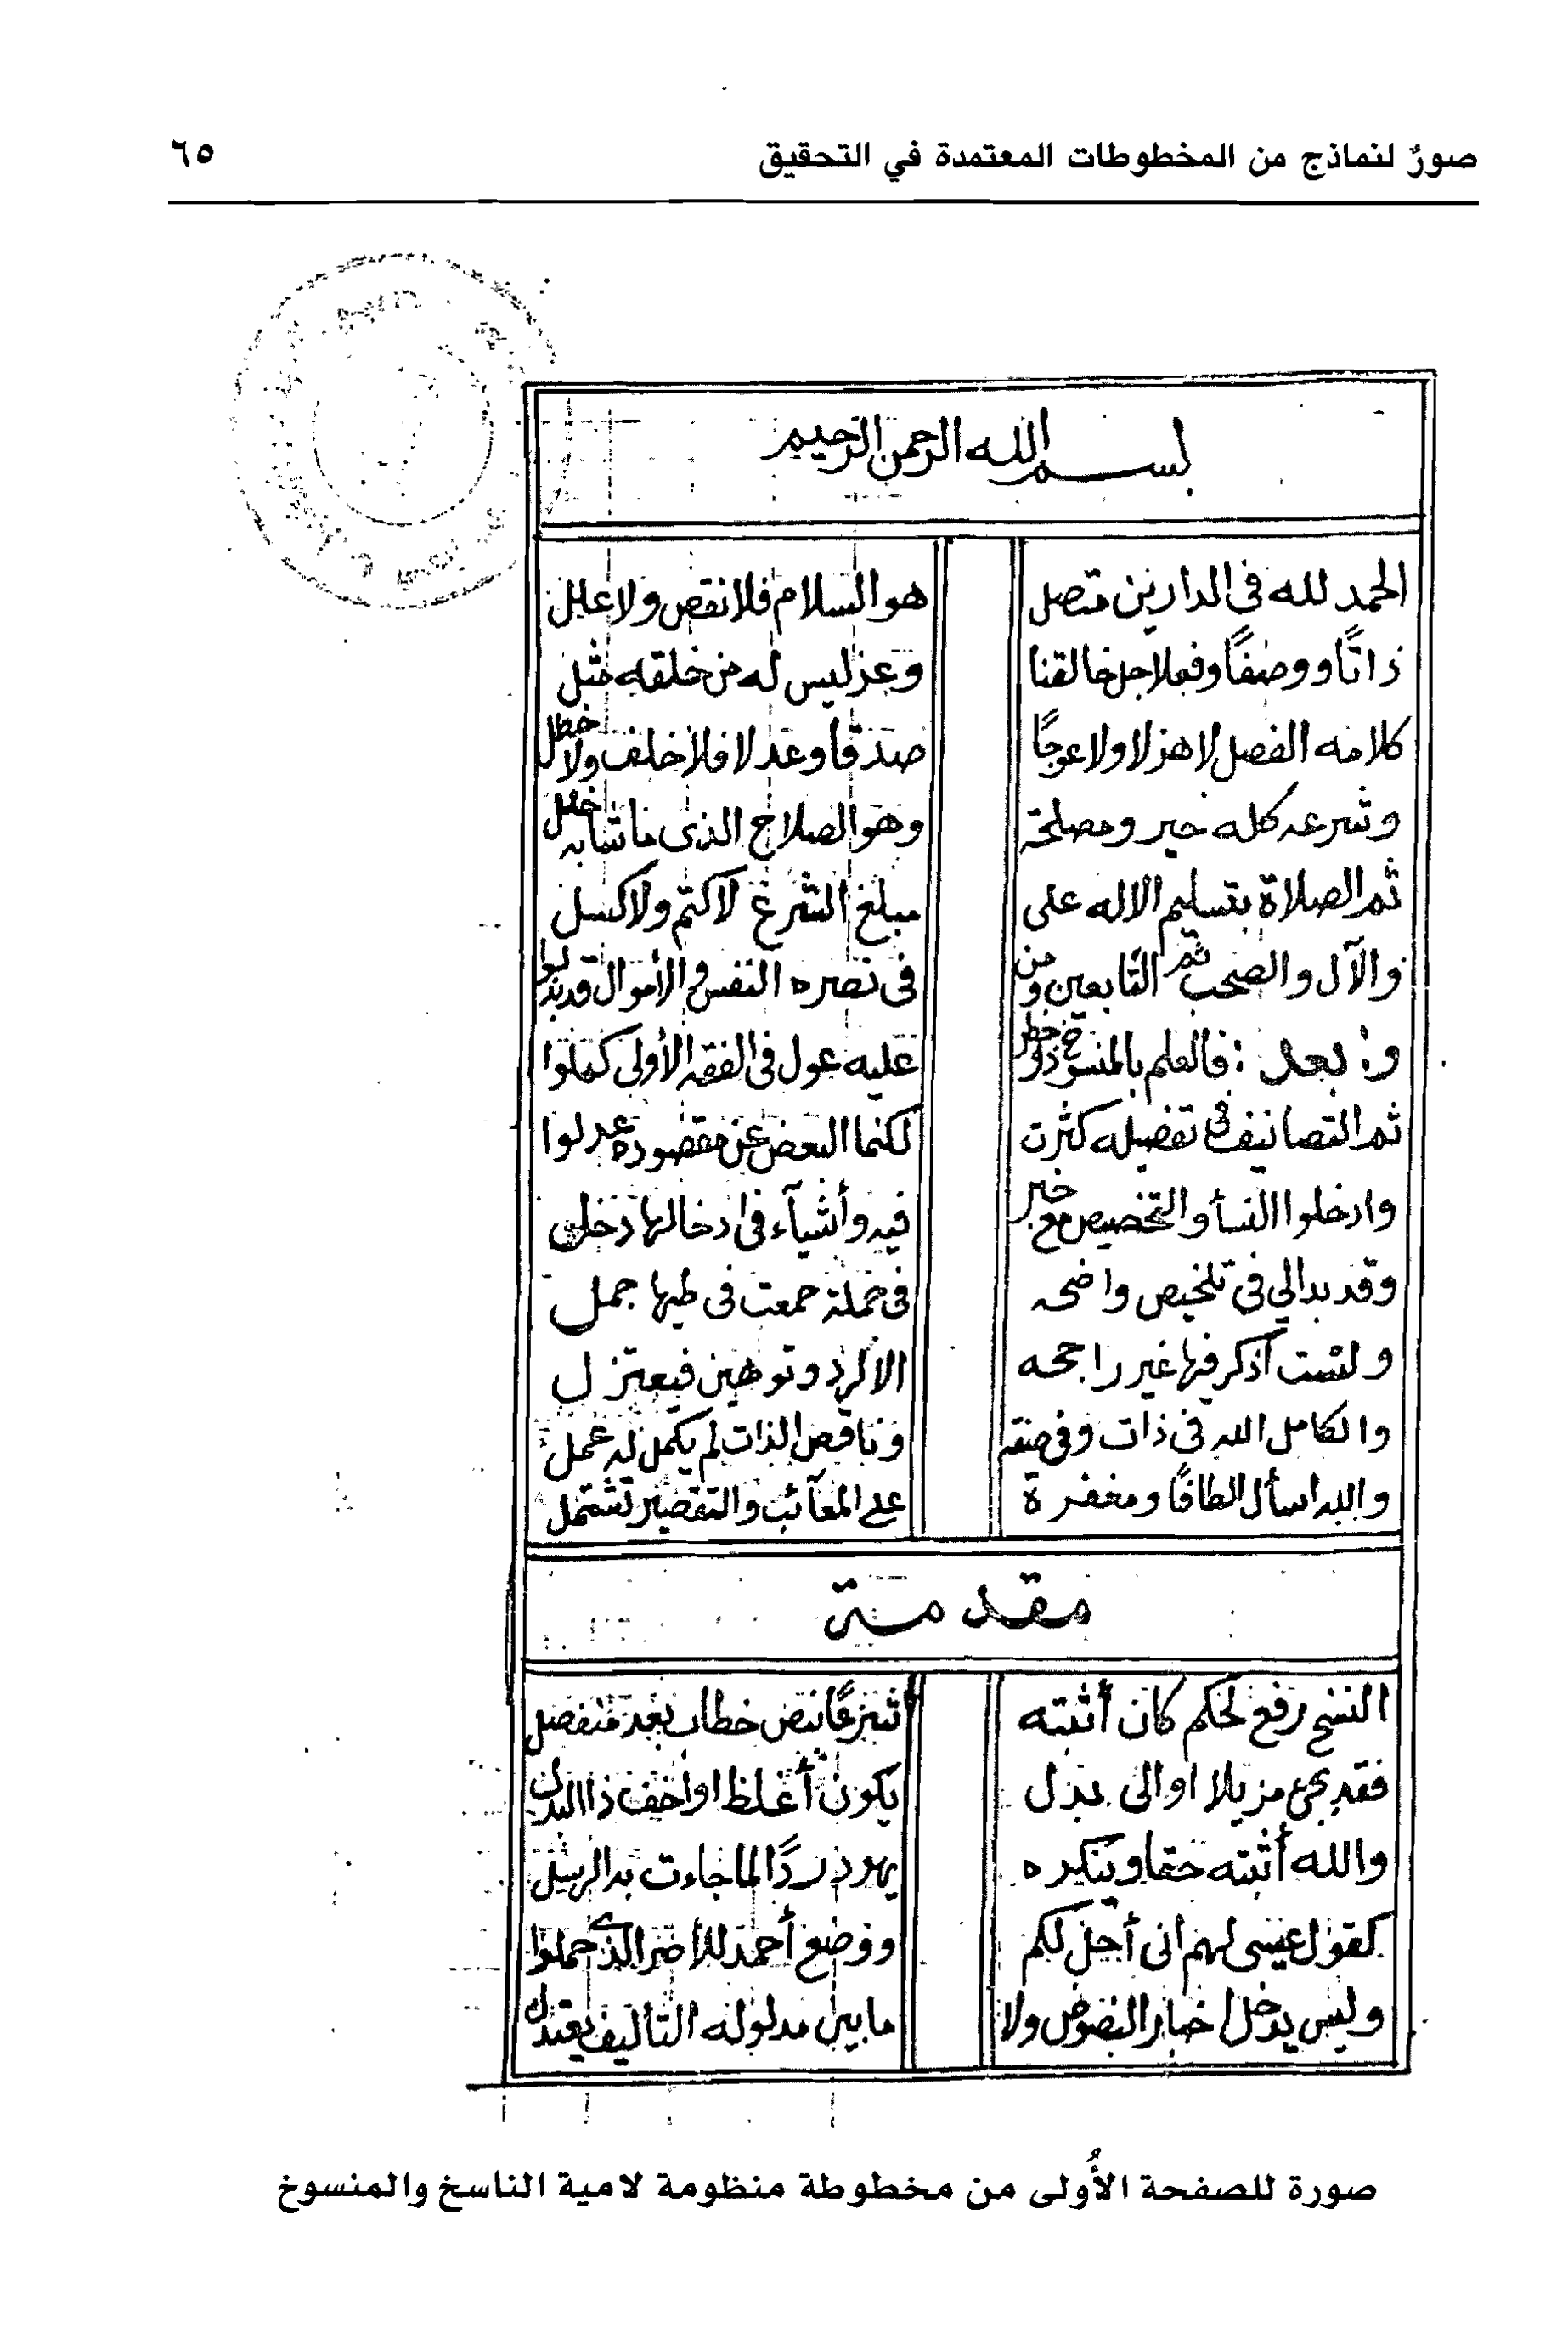 صورٌ لنماذج من المخطوطات المعتمدة في التحقيق ٦٥
بسم الله الرحمن الرحيم
الحمد لله في الدارين متصل هو السلام فلا نقص ولا علل
ذاتًا ووصفًا وفعلا جل خالقنا وعز ليس له من خلقه مثل
كلامه الفصل لا هزلا ولا عوجًا صدقا وعدلا فلا خلف ولا خطل
وشرعه كله خير ومصلحة وهو الصلاح الذى ما شابه خلل
ثم الصلاة بتسليم الاله على مبلغ الشرع لا كتم ولا كسل
والآل والصحب ثم التابعين ومن فى نصره النفس والأموال قد بذلوا
و: بعد : فالعلم بالمنسوخ ذو خطر عليه عول فى الفقه الأولى كملوا
ثم التصانيف فى تفصيله كثرت لكنما البعض عن مقصوده عدلوا
وادخلوا النسأ والتخصيص مع خبر فيه وأشيآء فى ادخالها دخل
وقد بدالي في تلخيص واضحه فى جملة جمعت فى طيها جمل
ولست أذكر فيها غير راجحه الا لرد وتوهين فيعتزل
والكامل الله في ذات وفى صفة وناقص الذات لم يكمل له عمل
والله اسأل الطافًا ومغفرة على المعآئب والتقصير تشتمل
مقدمة
النسخ رفع لحكم كان أثبته شرعًا بنص خطاب بعد منفصل
فقد يجئ مزيلا او الى بدل يكون أغلظ او اخف ذا البدل
والله أثبته حقا وينكره يهود ردًا لما جاءت به الرسل
كقول عيسى لهم انى أحل لكم ووضع أحمد للأصر الذى حملوا
وليس يدخل اخبار النصوص ولا ما بين مدلوله التأليف يعتدل
صورة للصفحة الأُولى من مخطوطة منظومة لامية الناسخ والمنسوخ